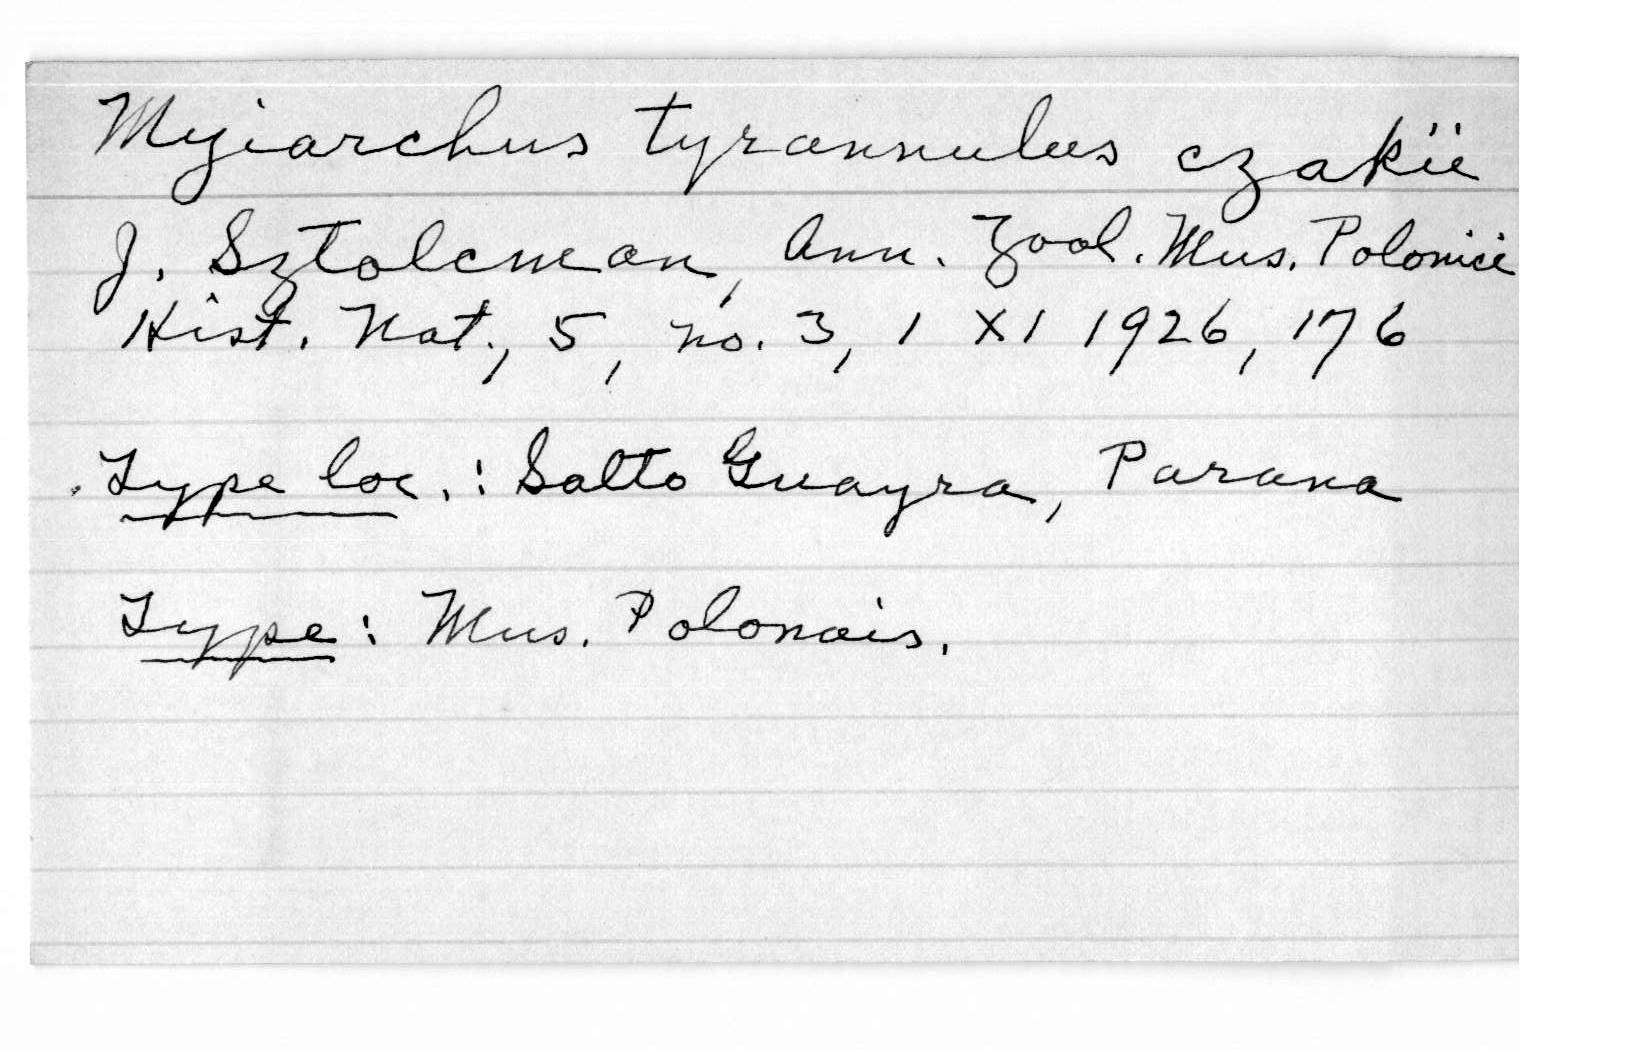 Myiarchus tyrannulus czakii
J. Sztolcman, Ann. Zool. Mus. Polonici
Hist. Nat., 5, no. 3, 1 XI 1926, 176
Type loc.: Salto Guayra, Parana
Type: Mus. Polonais.